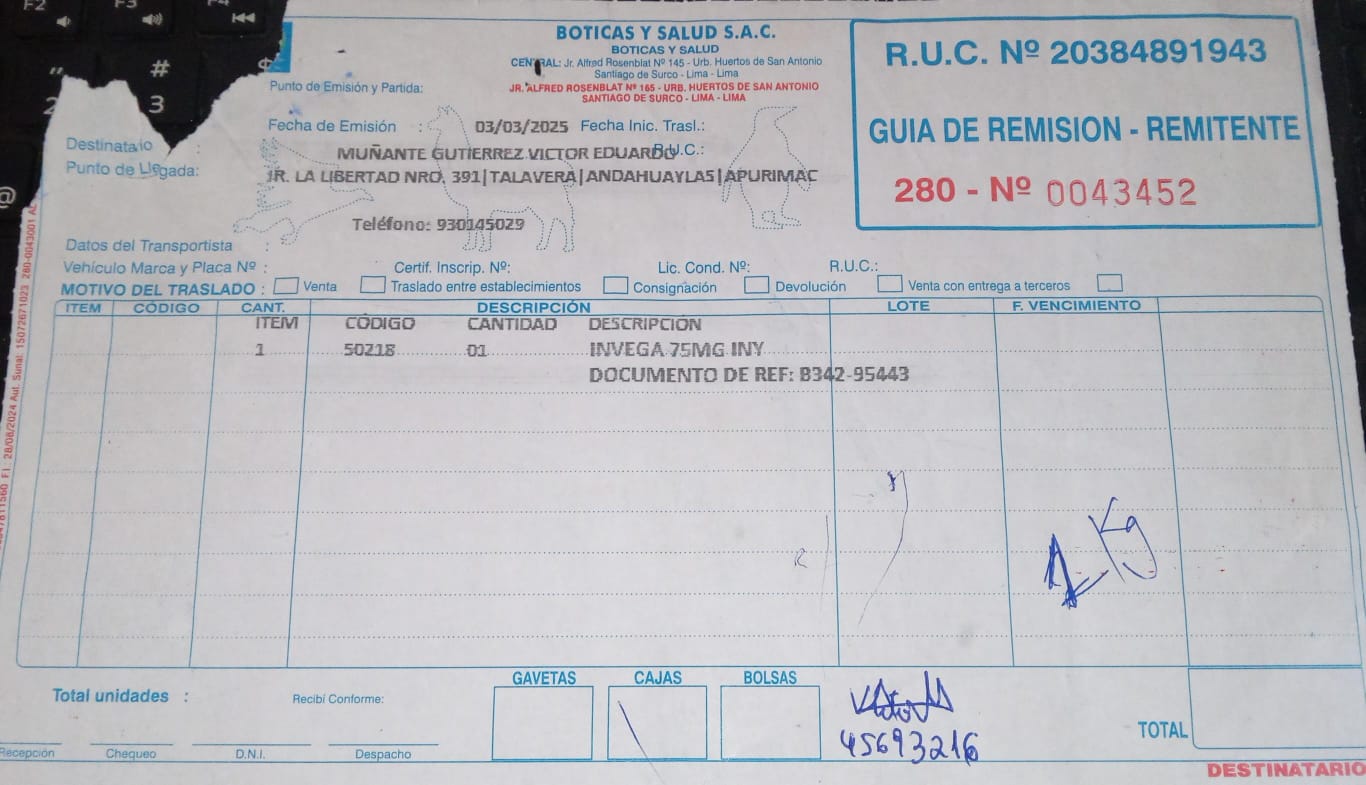 BOTICAS Y SALUD S.A.C.
BOTICAS Y SALUD
CENTRAL: Jr. Alfred Rosenblat Nº 145 - Urb. Huertos de San Antonio
Santiago de Surco - Lima - Lima
Punto de Emisión y Partida:
JR. ALFRED ROSENBLAT Nº 165 - URB. HUERTOS DE SAN ANTONIO
SANTIAGO DE SURCO - LIMA - LIMA
R.U.C. Nº 20384891943
GUIA DE REMISION - REMITENTE
280 - Nº 0043452
Fecha de Emisión : 03/03/2025 Fecha Inic. Trasl.:
Destinatario : MUÑANTE GUTIERREZ VICTOR EDUARDO R.U.C.:
Punto de Llegada: JR. LA LIBERTAD NRO. 391|TALAVERA|ANDAHUAYLAS|APURIMAC
Teléfono: 930145029
Datos del Transportista :
Vehículo Marca y Placa Nº : Certif. Inscrip. Nº: Lic. Cond. Nº: R.U.C.:
MOTIVO DEL TRASLADO : Venta Traslado entre establecimientos Consignación Devolución Venta con entrega a terceros
ITEM CÓDIGO CANT. DESCRIPCIÓN LOTE F. VENCIMIENTO
ITEM CODIGO CANTIDAD DESCRIPCION
1 50218 01 INVEGA 75MG INY
DOCUMENTO DE REF: B342-95443
1 Kg
GAVETAS CAJAS BOLSAS
Total unidades : Recibí Conforme:
45693216
TOTAL
Recepción Chequeo D.N.I. Despacho
DESTINATARIO
F2
F3
F4
#
3
2
@